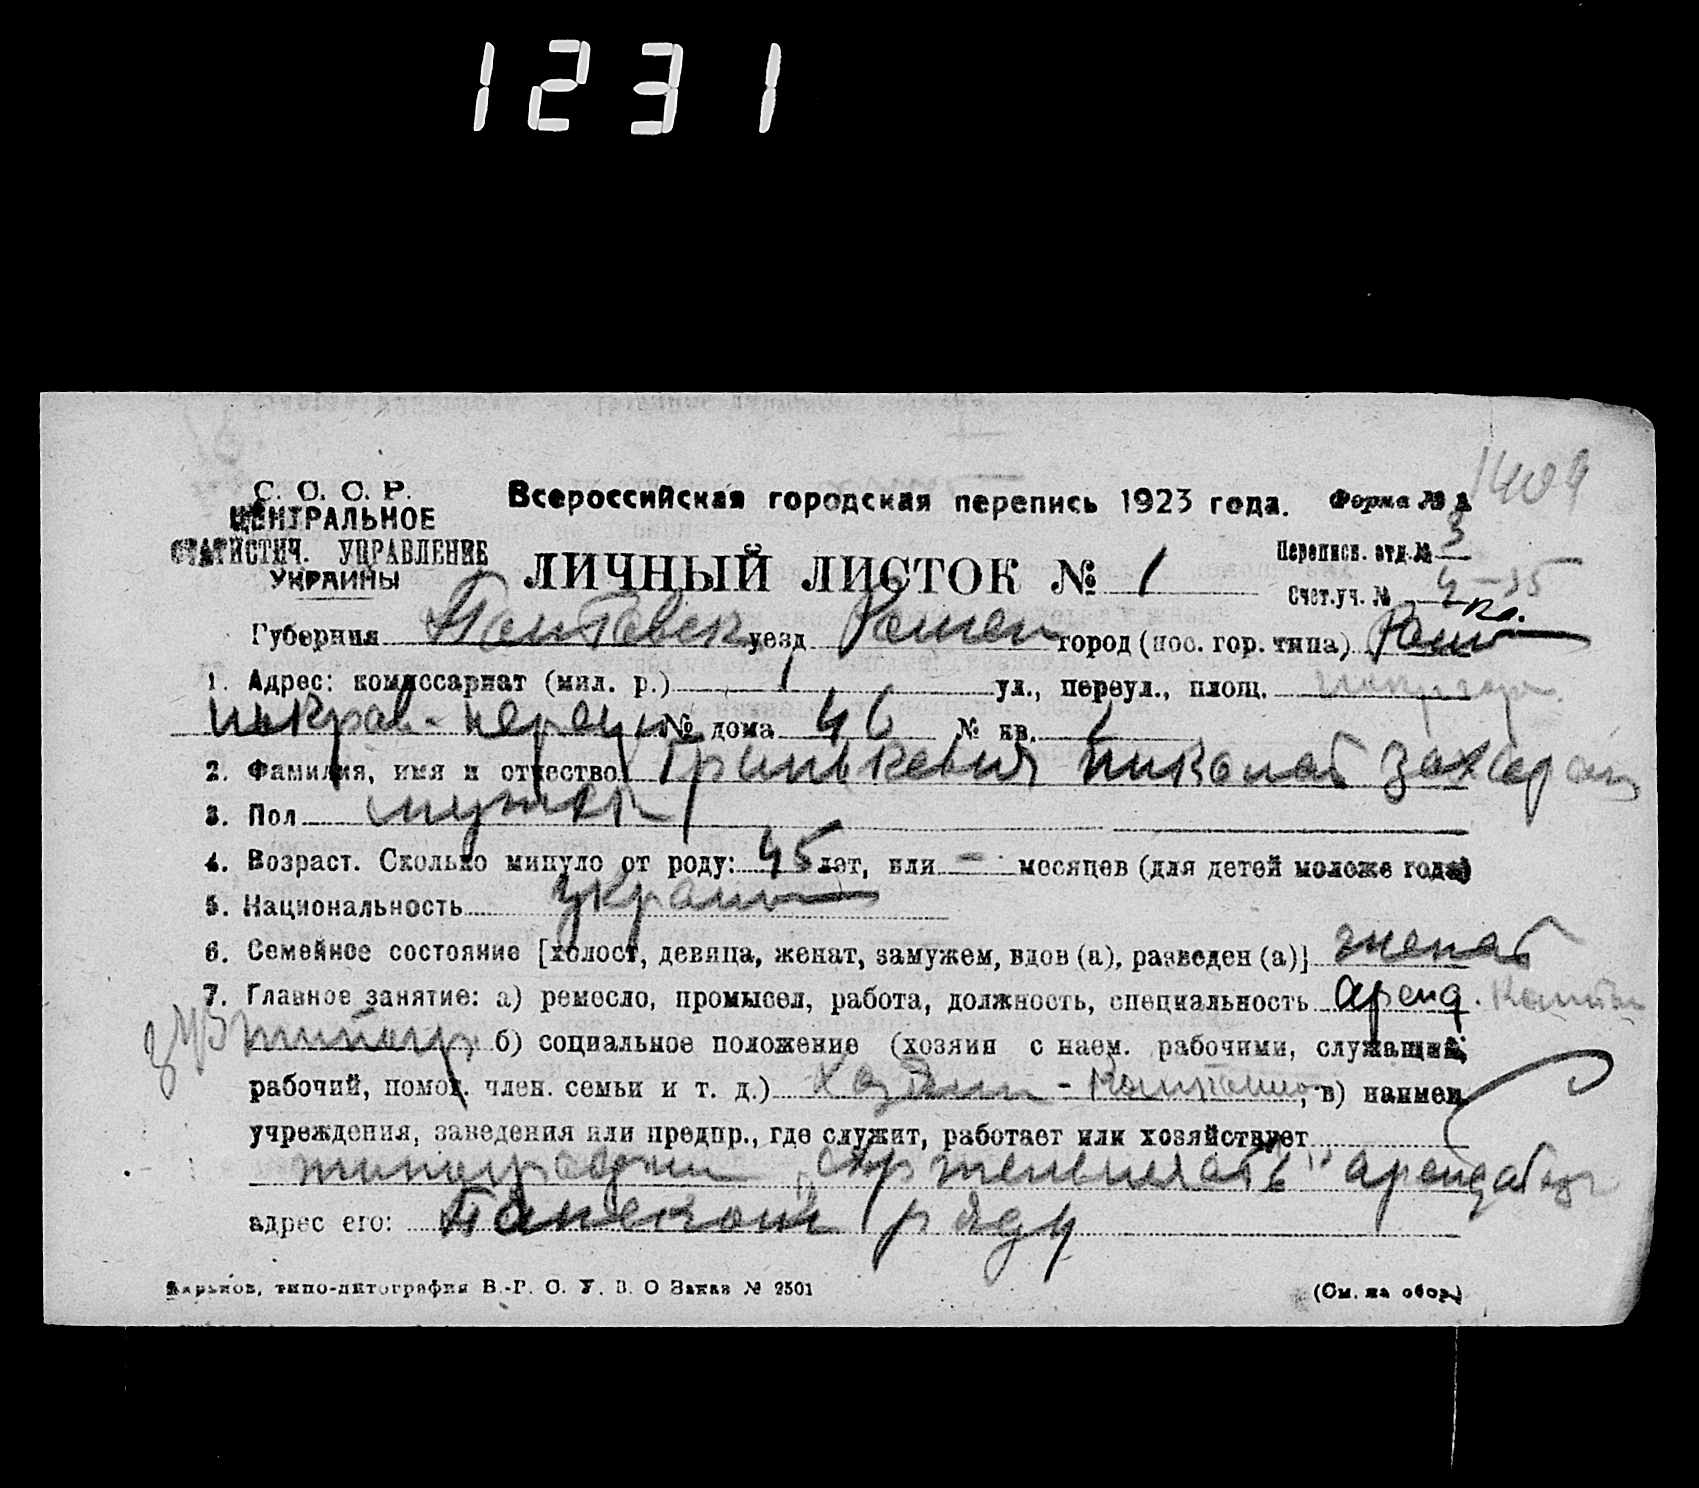 1231
1409
С. С. С. Р.
ЦЕНТРАЛЬНОЕ
СТАТИСТИЧ. УПРАВЛЕНИЕ
УКРАИНЫ
Всероссийская городская перепись 1923 года. Форма № 1
ЛИЧНЫЙ ЛИСТОК № 1
Переписн. отд. № 3
Счет. уч. № 4-35
Губерния Полтавск уезд Ромен город (пос. гор. типа) Ромн
1. Адрес: комиссариат (мил. р.) 1 ул., переул., площ.
№ дома 46 № кв.
2. Фамилия, имя и отчество Гринькевич Николай Захаров
3. Пол мужск
4. Возраст. Сколько минуло от роду: 45 лет, или - месяцев (для детей моложе года)
5. Национальность украин
6. Семейное состояние [холост, девица, женат, замужем, вдов (а), разведен (а)] женат
7. Главное занятие: а) ремесло, промысел, работа, должность, специальность аренд.
б) социальное положение (хозяин с наем. рабочими, служащий,
рабочий, помог. член. семьи и т. д.) хозяин - ; в) наимен.
учреждения, заведения или предпр., где служит, работает или хозяйствует
типографии
адрес его: ряду
Харьков, типо-литография В.-Р. С. У. В. О Заказ № 2501
(См. на обор.)